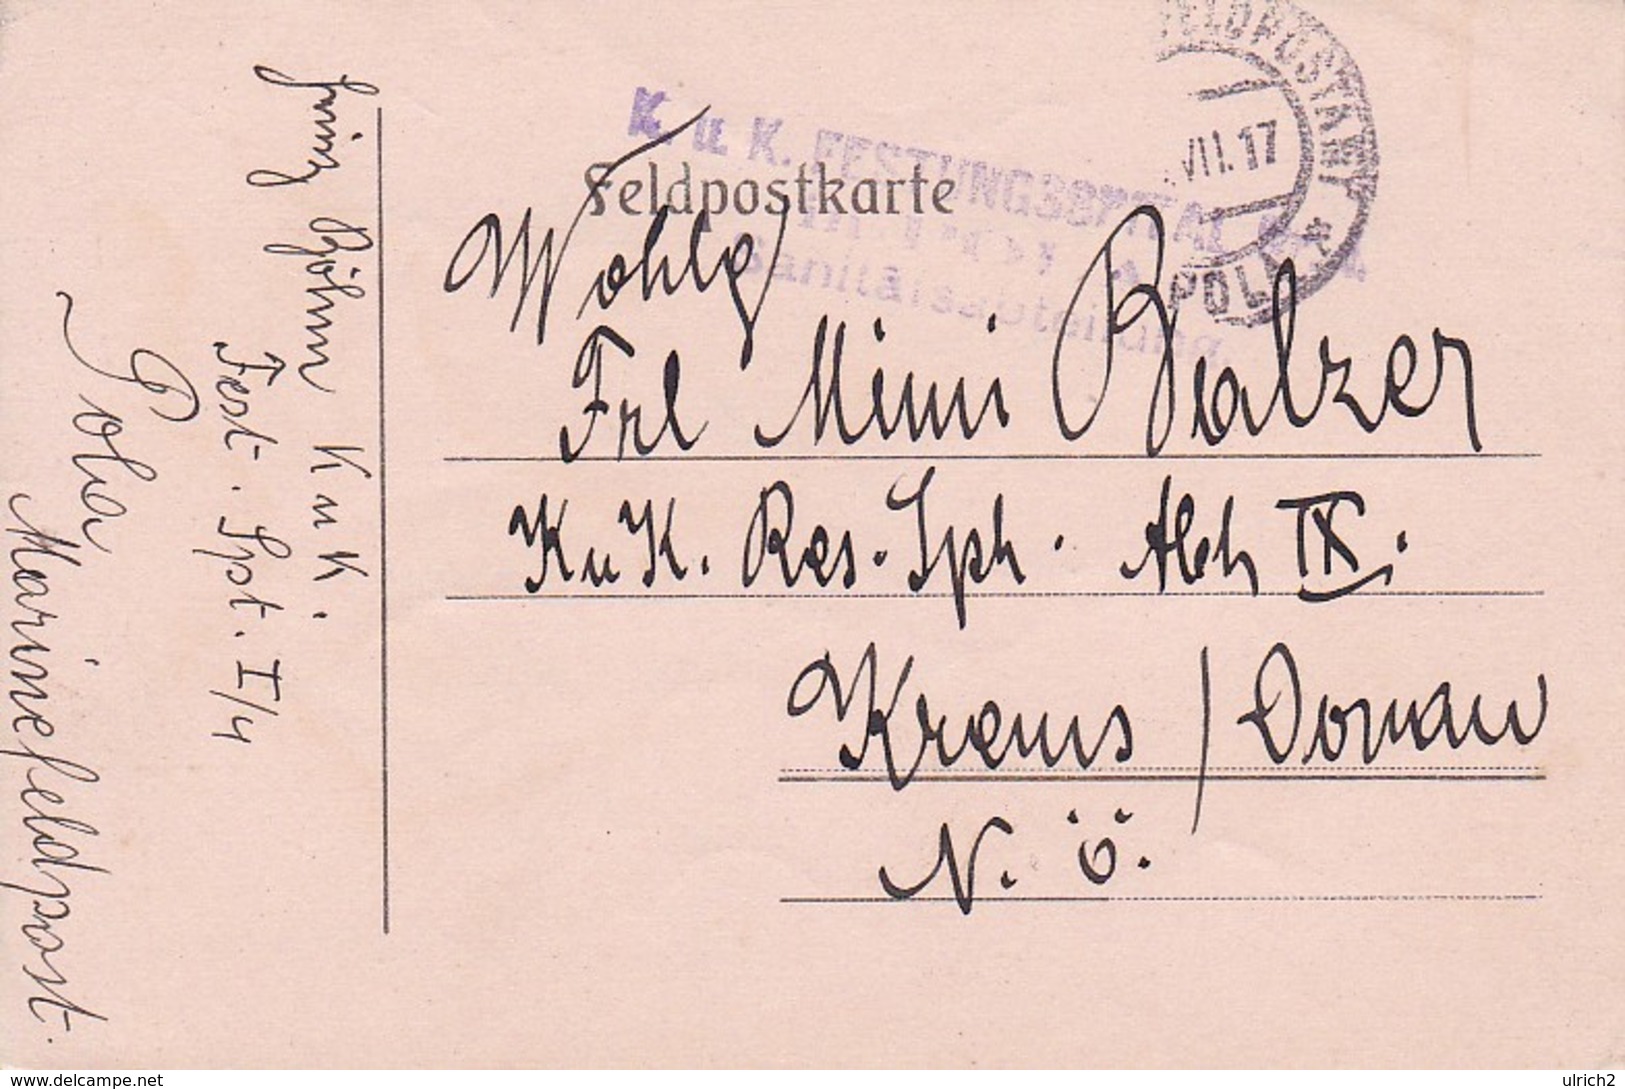 Feldpostkarte
K. u. K. FESTUNGSSPITAL
Sanitätsabteilung.
FELDPOSTAMT
VII. 17
POLA
Wohlg
Frl Mimi Balzer
K u K. Res. Sph. Abth IX.
Krems / Donau
N. Ö.
Böhm K u K.
Fest. Spt. I/4
Pola
Marinefeldpost.
www.delcampe.net
ulrich2